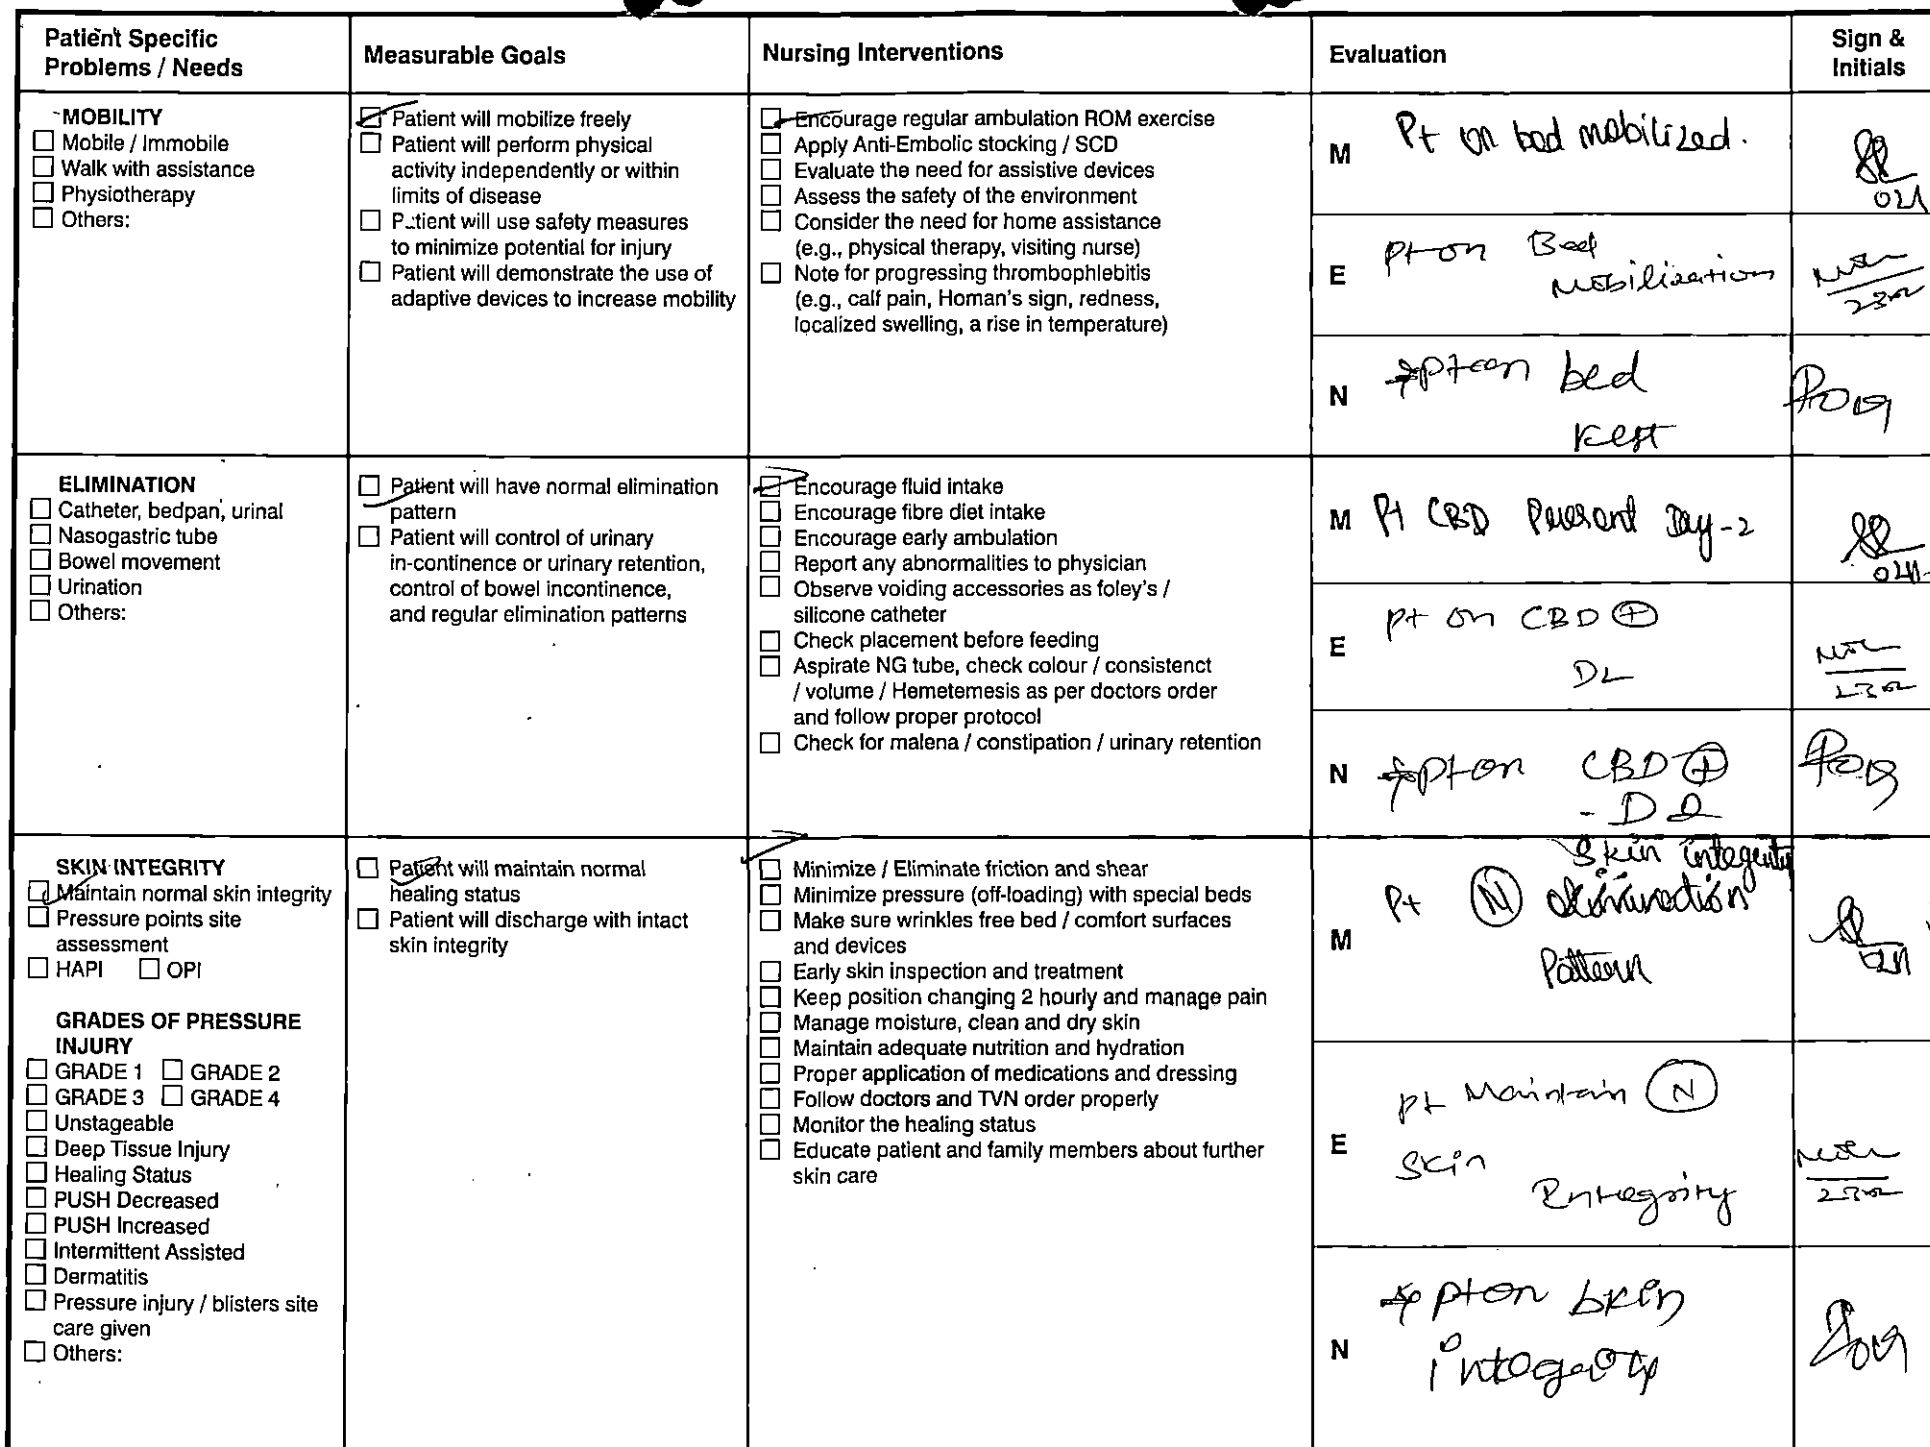 Patient Specific
Problems / Needs
Measurable Goals
Nursing Interventions
Evaluation
Sign &
Initials
MOBILITY
☐ Mobile / Immobile
☐ Walk with assistance
☐ Physiotherapy
☐ Others:
☑ Patient will mobilize freely
☐ Patient will perform physical
activity independently or within
limits of disease
☐ Patient will use safety measures
to minimize potential for injury
☐ Patient will demonstrate the use of
adaptive devices to increase mobility
☑ Encourage regular ambulation ROM exercise
☐ Apply Anti-Embolic stocking / SCD
☐ Evaluate the need for assistive devices
☐ Assess the safety of the environment
☐ Consider the need for home assistance
(e.g., physical therapy, visiting nurse)
☐ Note for progressing thrombophlebitis
(e.g., calf pain, Homan's sign, redness,
localized swelling, a rise in temperature)
M Pt on bed mobilized.
E Pt on Bed
Mobilization
N Pt on bed
ELIMINATION
☐ Catheter, bedpan, urinal
☐ Nasogastric tube
☐ Bowel movement
☐ Urination
☐ Others:
☑ Patient will have normal elimination
pattern
☐ Patient will control of urinary
in-continence or urinary retention,
control of bowel incontinence,
and regular elimination patterns
☑ Encourage fluid intake
☐ Encourage fibre diet intake
☐ Encourage early ambulation
☐ Report any abnormalities to physician
☐ Observe voiding accessories as foley's /
silicone catheter
☐ Check placement before feeding
☐ Aspirate NG tube, check colour / consistenct
/ volume / Hemetemesis as per doctors order
and follow proper protocol
☐ Check for malena / constipation / urinary retention
M Pt CBD Present Day-2
E pt on CBD ⊕
N pt on CBD ⊕
SKIN INTEGRITY
☑ Maintain normal skin integrity
☐ Pressure points site
assessment
☐ HAPI ☐ OPI
GRADES OF PRESSURE
INJURY
☐ GRADE 1 ☐ GRADE 2
☐ GRADE 3 ☐ GRADE 4
☐ Unstageable
☐ Deep Tissue Injury
☐ Healing Status
☐ PUSH Decreased
☐ PUSH Increased
☐ Intermittent Assisted
☐ Dermatitis
☐ Pressure injury / blisters site
care given
☐ Others:
☑ Patient will maintain normal
healing status
☐ Patient will discharge with intact
skin integrity
☑ Minimize / Eliminate friction and shear
☐ Minimize pressure (off-loading) with special beds
☐ Make sure wrinkles free bed / comfort surfaces
and devices
☐ Early skin inspection and treatment
☐ Keep position changing 2 hourly and manage pain
☐ Manage moisture, clean and dry skin
☐ Maintain adequate nutrition and hydration
☐ Proper application of medications and dressing
☐ Follow doctors and TVN order properly
☐ Monitor the healing status
☐ Educate patient and family members about further
skin care
Skin integrity
M Pt Ⓝ
Pattern
E pt Maintain Ⓝ
Skin
Entegrity
N pt on skin